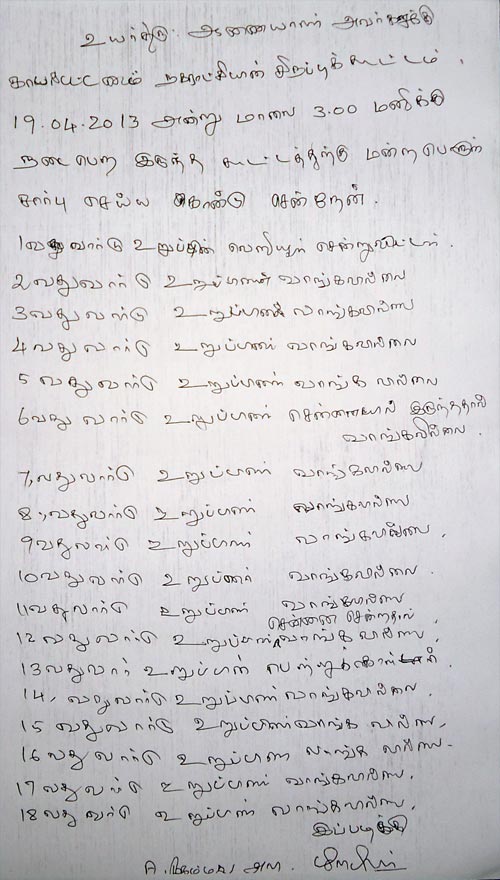 உயர்திரு. ஆணையாளர் அவர்களுக்கு
காயல்பட்டணம் நகராட்சியின் சிறப்புக் கூட்டம்.
19.04.2013 அன்று மாலை 3.00 மணிக்கு
நடைபெற இருந்த கூட்டத்திற்கு மன்ற பொருள்
சார்பு செய்ய கொண்டு சென்றேன்.
1வது வார்டு உறுப்பினர் வெளியூர் சென்றுவிட்டார்.
2வதுவார்டு உறுப்பினர் வாங்கவில்லை
3வதுவார்டு உறுப்பினர் வாங்கவில்லை
4வதுவார்டு உறுப்பினர் வாங்கவில்லை
5வதுவார்டு உறுப்பினர் வாங்கவில்லை
6வது வார்டு உறுப்பினர் சென்னையில் இருந்ததால்
வாங்கவில்லை.
7,வதுவார்டு உறுப்பினர் வாங்கவில்லை
8,வதுவார்டு உறுப்பினர் வாங்கவில்லை
9வதுவார்டு உறுப்பினர் வாங்கவில்லை.
10வதுவார்டு உறுப்பினர் வாங்கவில்லை.
11வதுவார்டு உறுப்பினர் வாங்கவில்லை
சென்னை சென்றதால்
12வதுவார்டு உறுப்பினர் வாங்கவில்லை.
13வதுவார் உறுப்பினர் பெற்றுக்கொண்டார்
14,வதுவார்டு உறுப்பினர் வாங்கவில்லை.
15வதுவார்டு உறுப்பினர் வாங்கவில்லை.
16வதுவார்டு உறுப்பினர் வாங்கவில்லை.
17வதுவார்டு உறுப்பினர் வாங்கவில்லை.
18வதுவார்டு உறுப்பினர் வாங்கவில்லை.
இப்படிக்கு
A.